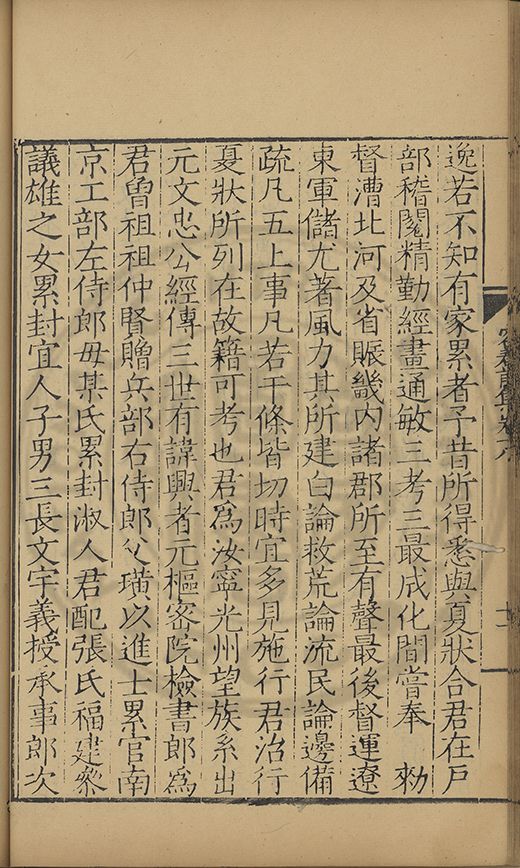 逸若不知有家累者予昔所得悉與夏狀合君在戶
部稽閱精勤經畫通敏三考三最成化間嘗奉　勑
督漕北河及省賑畿內諸郡所至有聲最後督運遼
東軍儲尤著風力其所建白論救荒論流民論邊備
疏凡五上事凡若干條皆切時宜多見施行君治行
夏狀所列在故籍可考也君爲汝寧光州望族系出
元文忠公經傳三世有諱興者元樞密院檢書郎爲
君曾祖祖仲賢贈兵部右侍郎父璜以進士累官南
京工部左侍郎母某氏累封淑人君配張氏福建叅
議雄之女累封宜人子男三長文宇義授承事郎次